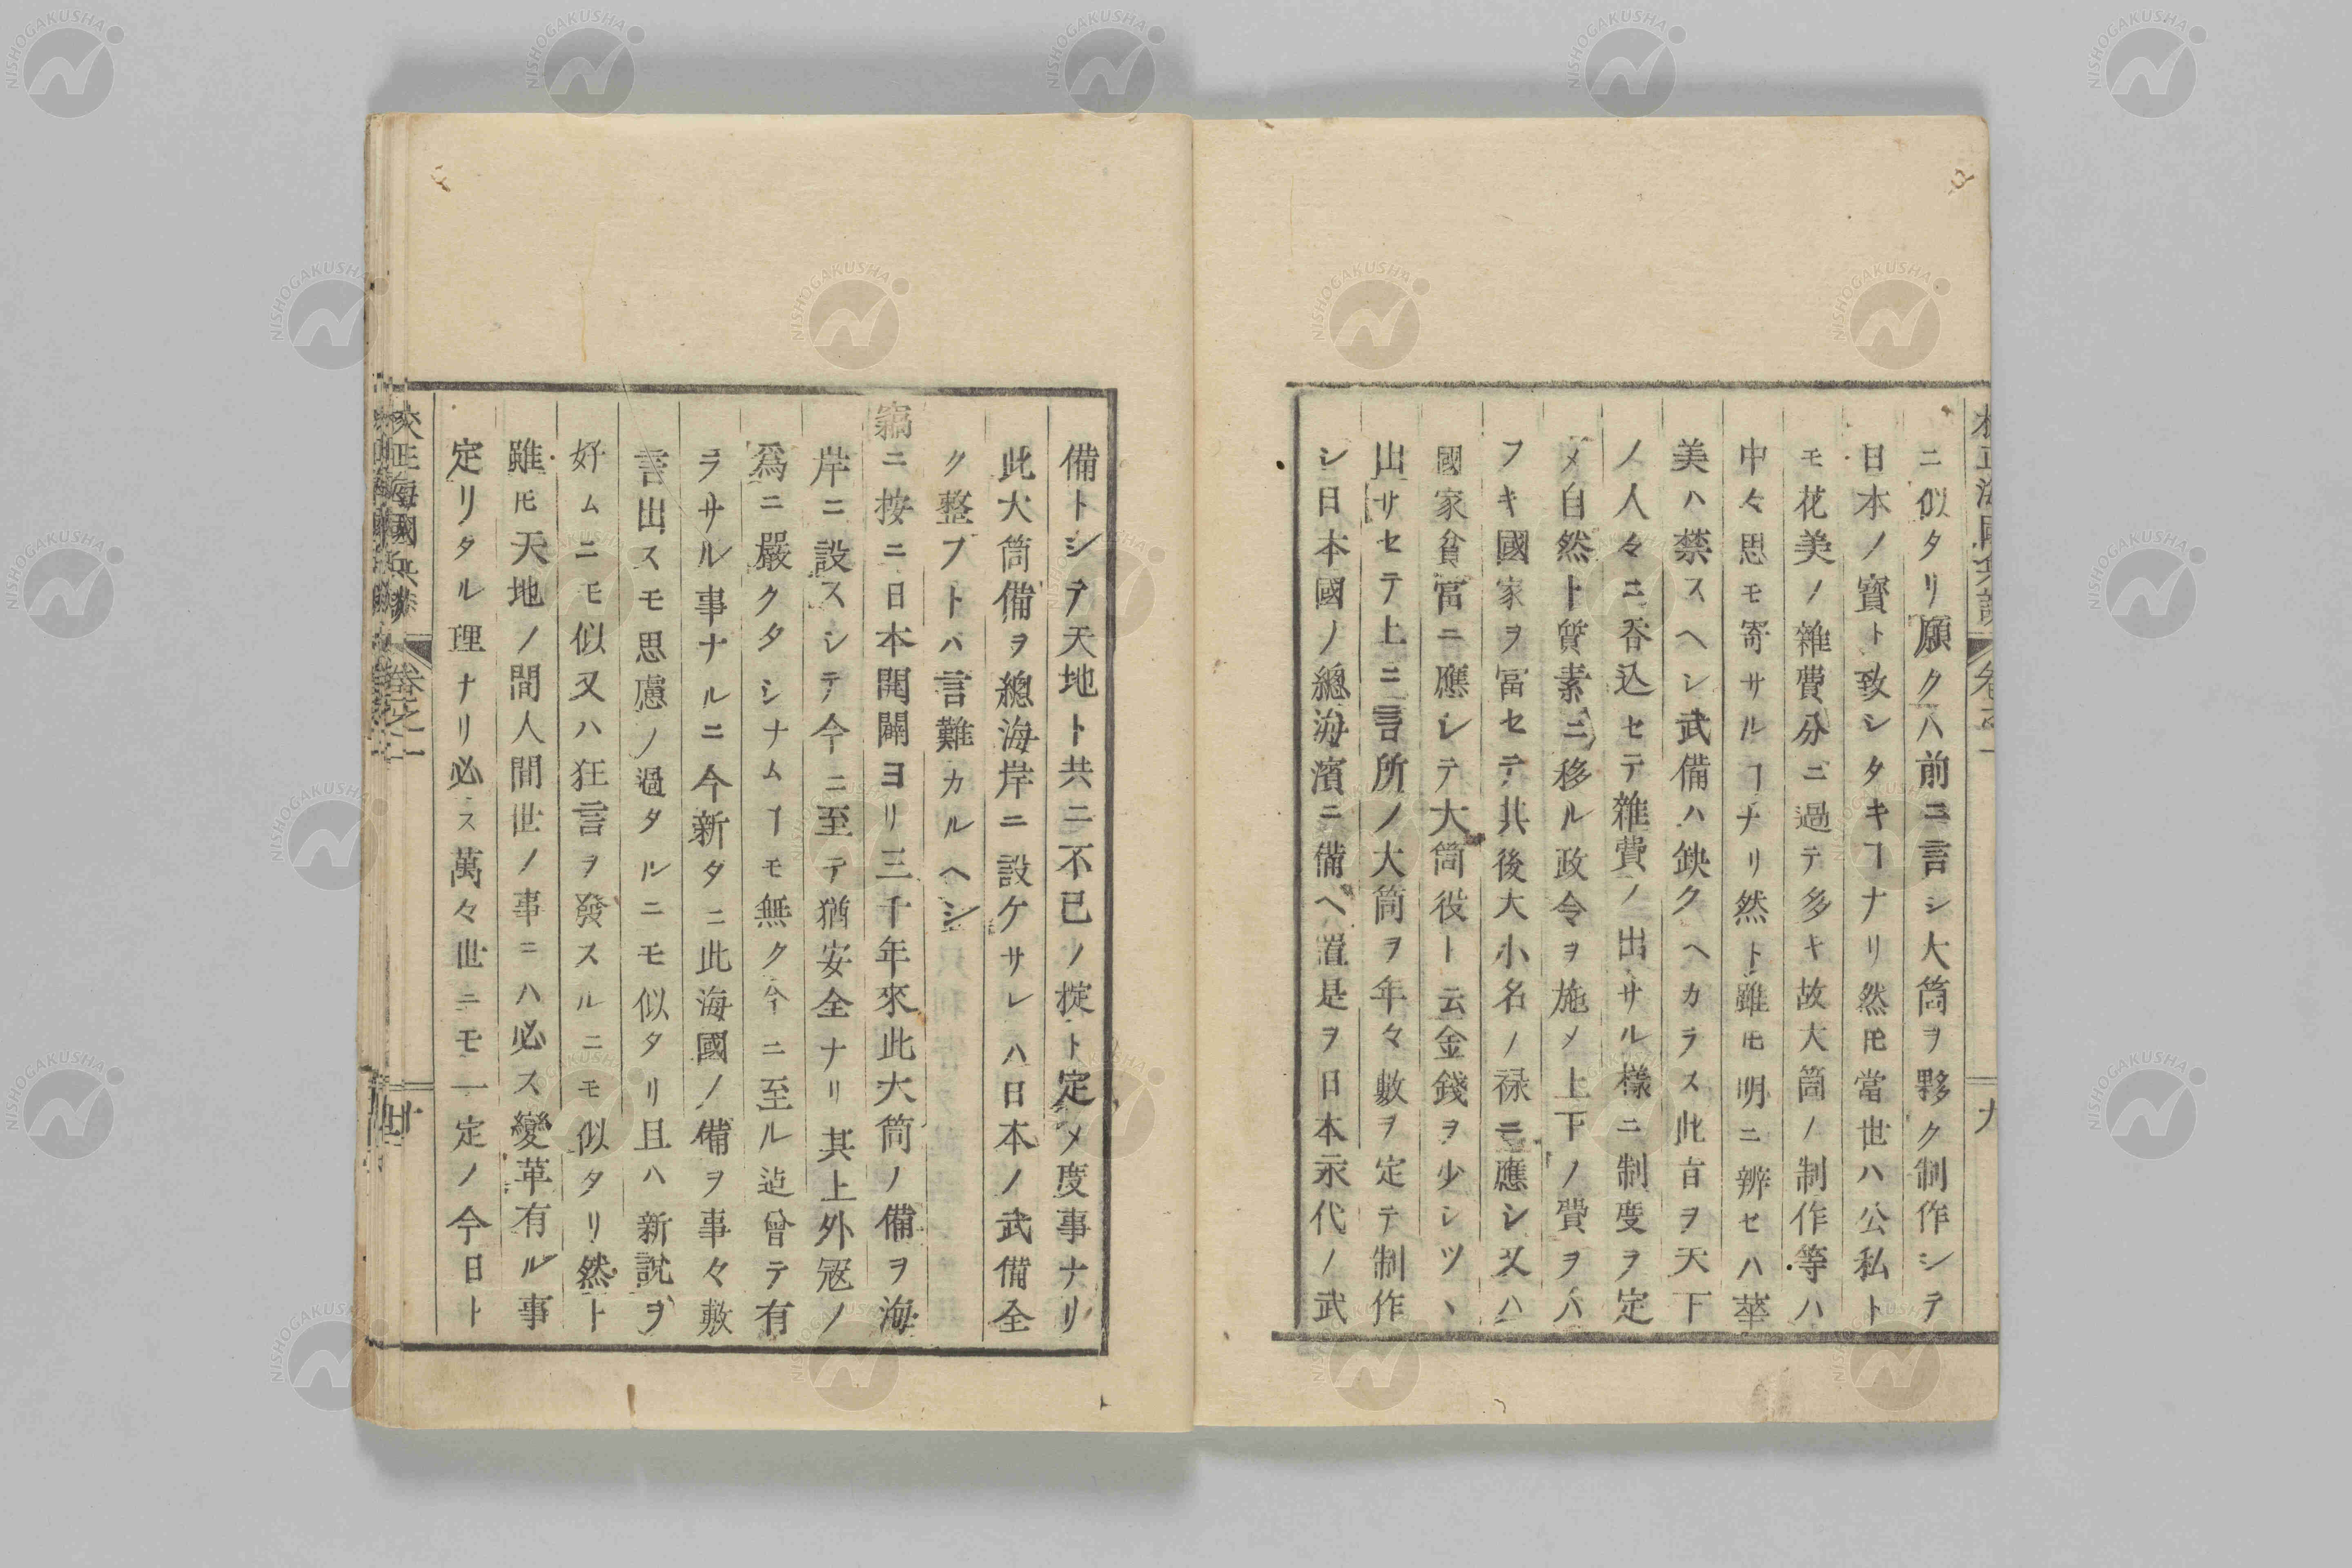 ニ似タリ願クハ前ニ言シ大筒ヲ夥ク制作シテ
日本ノ寳ト致シタキヿナリ然𪜈當世ハ公私ト
モ花美ノ雜費分ニ過テ多キ故大筒ノ制作等ハ
中々思モ寄サルヿナリ然ト雖𪜈明ニ辨セハ華
美ハ禁スヘシ武備ハ鈌クヘカラス此言ヲ天下
ノ人々ニ呑込セテ雜費ノ出サル様ニ制度ヲ定
メ自然ト質素ニ移ル政令ヲ施メ上下ノ費ヲハ
フキ國家ヲ冨セテ其後大小名ノ禄ニ應シ又ハ
國家貧富ニ應シテ大筒役ト云金錢ヲ少シツヽ
出サセテ上ニ言所ノ大筒ヲ年々數ヲ定テ制作
シ日本國ノ總海濱ニ備ヘ置是ヲ日本永代ノ武
備トシテ天地ト共ニ不已ノ掟ト定メ度事ナリ
此大筒備ヲ總海岸ニ設ケサレハ日本ノ武備全
ク整フトハ言難カルヘシ
竊ニ按ニ日本開闢ヨリ三千年來此大筒ノ備ヲ海
岸ニ設スシテ今ニ至テ猶安全ナリ其上外冦ノ
爲ニ嚴クタシナムヿモ無ク今ニ至ル迠曾テ有
ヲサル事ナルニ今新タニ此海國ノ備ヲ事々敷
言出スモ思慮ノ過タルニモ似タリ且ハ新説ヲ
好ムニモ似又ハ狂言ヲ發スルニモ似タリ然ト
雖𪜈天地ノ間人間世ノ事ニハ必ス變革有ル事
定リタル理ナリ必ス萬々世ニモ一定ノ今日ト
校正海國兵談
卷之一